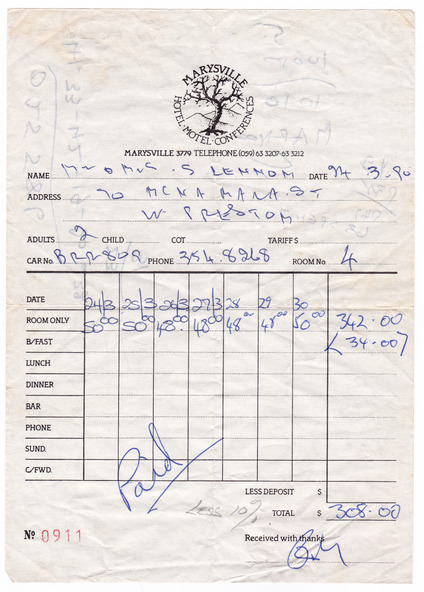 MARYSVILLE
HOTEL · MOTEL · CONFERENCES
MARYSVILLE 3779 TELEPHONE (059) 63 3207-63 3212
NAME S LENNOM DATE 24.3.90
ADDRESS 70 ST
W. PRESTOM
ADULTS 2 CHILD COT TARIFF $
CAR No. PHONE 354.8268 ROOM No. 4
DATE 24/3 25/3 26/3 27/3 28 29 30
ROOM ONLY 50.00 50.00 48.00 48.00 48.00 48.00 50.00 342.00
B/FAST 34.00
LUNCH
DINNER
BAR
PHONE
SUND.
C/FWD.
Paid
LESS DEPOSIT $
Less 10%
TOTAL $ 308.00
No 0911
Received with thanks